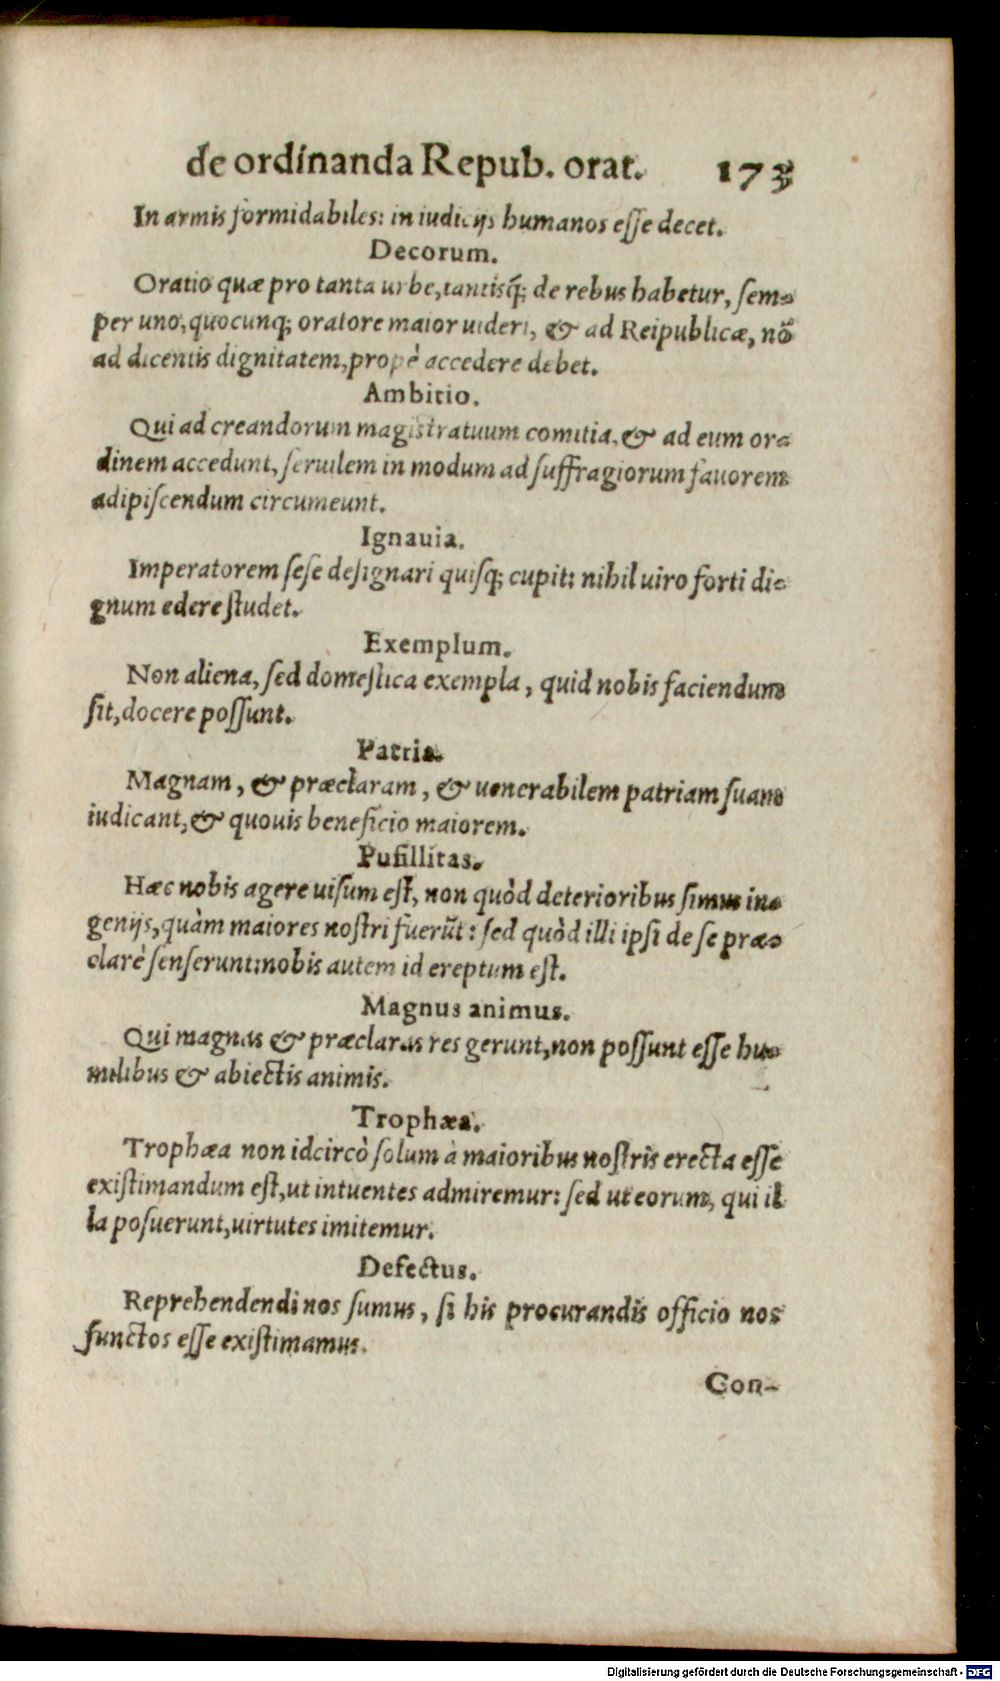 de ordinanda Repub. orat. 173
In armis formidabiles: in iudicijs humanos esse decet.
Decorum.
Oratio quæ pro tanta urbe, tantisq́; de rebus habetur, sem-
per uno, quocunq; oratore maior uideri, & ad Reipublicæ, nõ
ad dicentis dignitatem, propè accedere debet.
Ambitio.
Qui ad creandorum magistratuum comitia, & ad eum or-
dinem accedunt, seruilem in modum ad suffragiorum fauorem
adipiscendum circumeunt.
Ignauia.
Imperatorem sese designari quisq; cupit: nihil uiro forti di-
gnum edere studet.
Exemplum.
Non aliena, sed domestica exempla, quid nobis faciendum
sit, docere possunt.
Patria.
Magnam, & præclaram, & uenerabilem patriam suam
iudicant, & quouis beneficio maiorem.
Pusillitas.
Hæc nobis agere uisum est, non quòd deterioribus simus in-
genijs, quàm maiores nostri fuerũt: sed quòd illi ipsi de se præ-
clarè senserunt: nobis autem id ereptum est.
Magnus animus.
Qui magnas & præclaras res gerunt, non possunt esse hu-
milibus & abiectis animis.
Trophæa.
Trophæa non idcircò solum à maioribus nostris erecta esse
existimandum est, ut intuentes admiremur: sed ut eorum, qui il
la posuerunt, uirtutes imitemur.
Defectus.
Reprehendendi nos sumus, si his procurandis officio nos
functos esse existimamus.
Con-
Digitalisierung gefördert durch die Deutsche Forschungsgemeinschaft - DFG